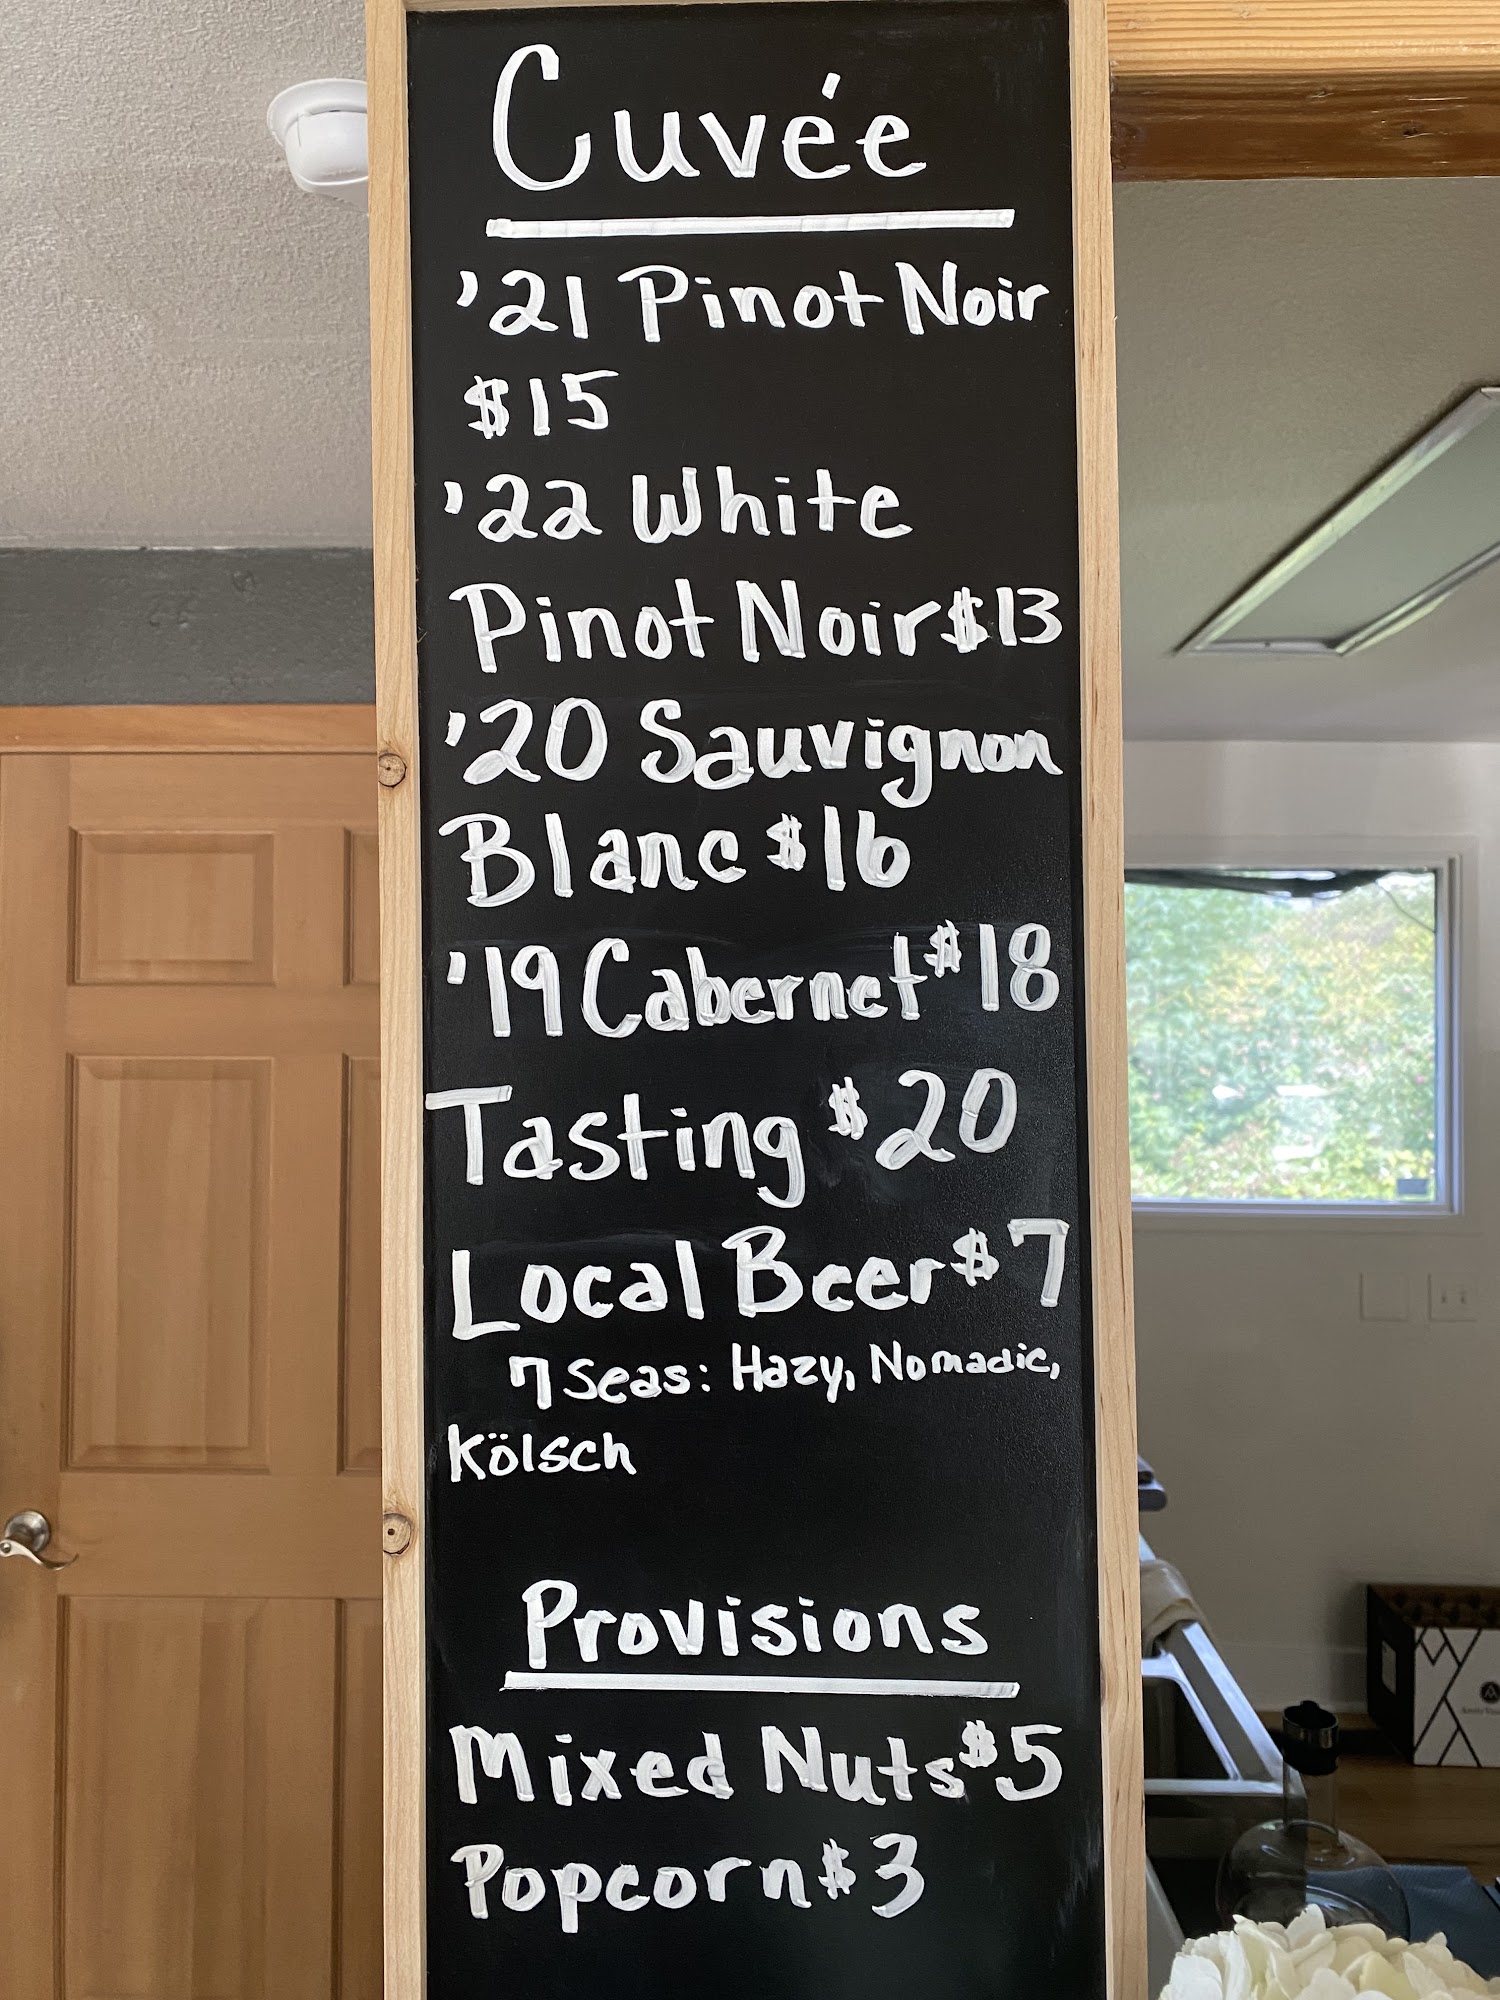 Cuvée
'21 Pinot Noir
$15
'22 White
Pinot Noir $13
'20 Sauvignon
Blanc $16
'19 Cabernet $18
Tasting $20
Local Beer $7
7 Seas: Hazy, Nomadic,
Kölsch
Provisions
Mixed Nuts $5
Popcorn $3